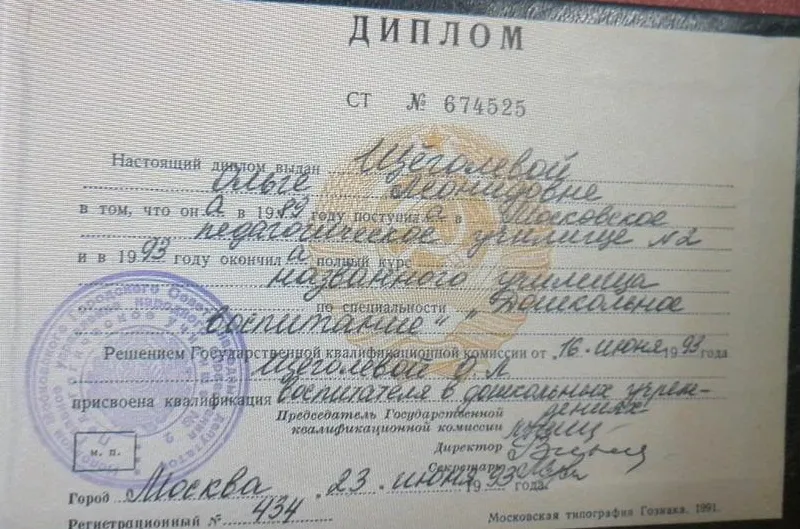 ДИПЛОМ
СТ № 674525
Настоящий диплом выдан Щёголевой
Ольге Леонидовне
в том, что он а в 1989 году поступил а в Московское
педагогическое училище №2
и в 1993 году окончил а полный курс
названного училища
по специальности „Дошкольное
воспитание"
Решением Государственной квалификационной комиссии от 16 июня 1993 года
Щеголевой О.Л.
присвоена квалификация воспитателя в дошкольных учреж-
дениях
Председатель Государственной
квалификационной комиссии
Директор
Секретарь
м. п.
Город Москва 23 июня 1993 года.
Регистрационный № 434
Московская типография Гознака. 1991.